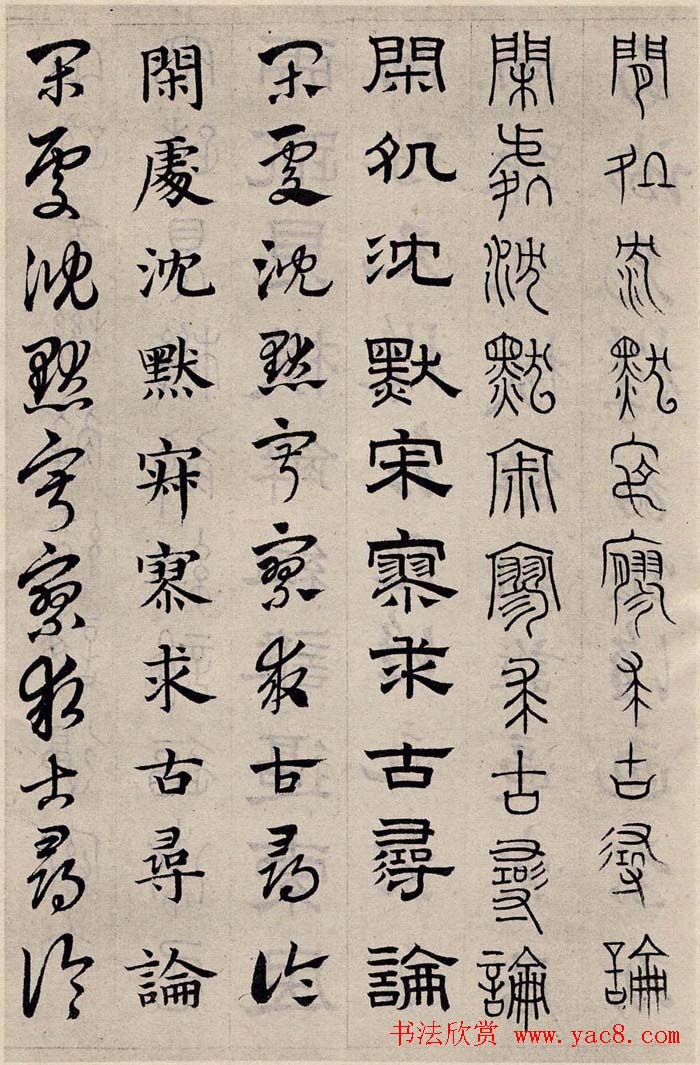 閒処沈默寂寥求古尋論
閑處沈默寂寥求古尋論
閑処沈默寂寥求古尋論
閑處沈默寂寥求古尋論
閑處沈默寂寥求古尋論
閑處沈默寂寥求古尋論
书法欣赏 www.yac8.com